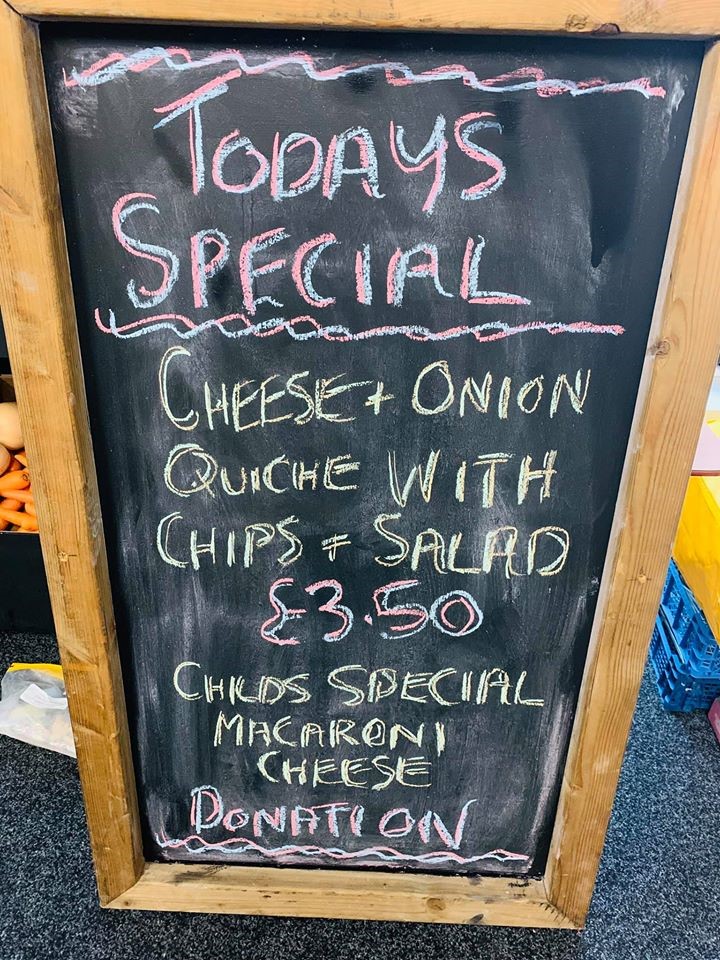 TODAYS
SPECIAL
CHEESE + ONION
QUICHE WITH
CHIPS + SALAD
£3.50
CHILDS SPECIAL
MACARONI
CHEESE
DONATION